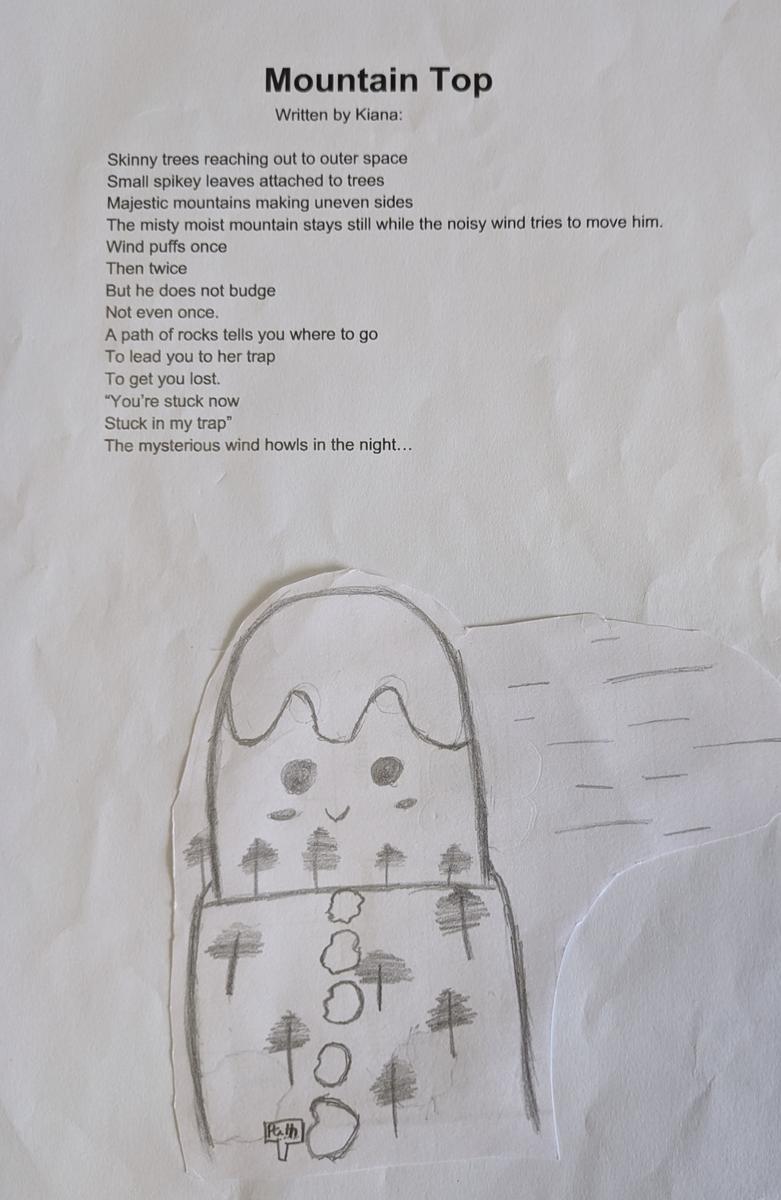 Mountain Top
Written by Kiana:
Skinny trees reaching out to outer space
Small spikey leaves attached to trees
Majestic mountains making uneven sides
The misty moist mountain stays still while the noisy wind tries to move him.
Wind puffs once
Then twice
But he does not budge
Not even once.
A path of rocks tells you where to go
To lead you to her trap
To get you lost.
“You’re stuck now
Stuck in my trap”
The mysterious wind howls in the night…
Path